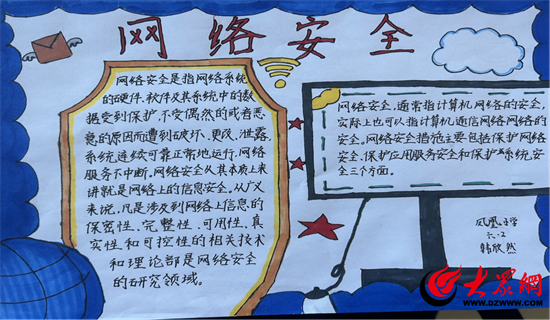 网络安全
网络安全是指网络系统
的硬件、软件及其系统中的数
据受到保护,不受偶然的或者恶
意的原因而遭到破坏、更改、泄露,
系统连续可靠正常地运行,网络
服务不中断。网络安全从其本质上来
讲就是网络上的信息安全。从广义
来说,凡是涉及到网络上信息的
保密性、完整性、可用性、真
实性和可控性的相关技术
和理论都是网络安全
的研究领域。
网络安全,通常指计算机网络的安全,
实际上也可以指计算机通信网络网络的
安全。网络安全措施主要包括保护网络
安全、保护应用服务安全和保护系统安
全三个方面。
凤凰小学
六.2
韩欣然
大众网
WWW.DZWWW.COM